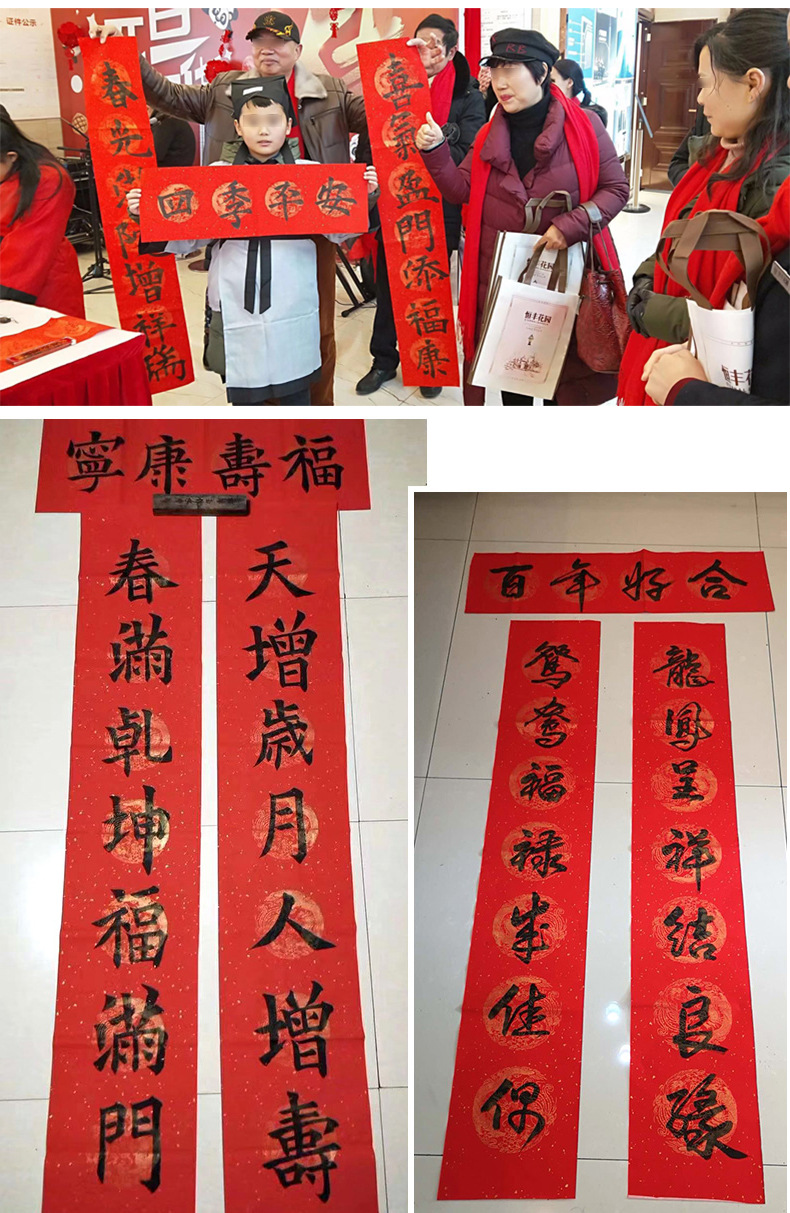 证件公示
旦
喜氣盈門添福康
春光滿院增祥瑞
四季平安
恒丰花园
恒丰花园
恒丰花
福壽康寧
天增歲月人增壽
春滿乾坤福滿門
百年好合
龍鳳呈祥結良緣
鴛鴦福禄成佳偶